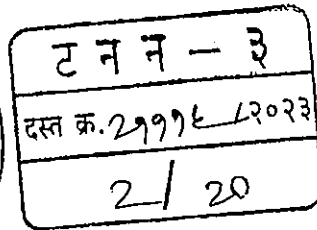 ट न न - ३
दस्त क्र. 2999६/२०२३
2/20